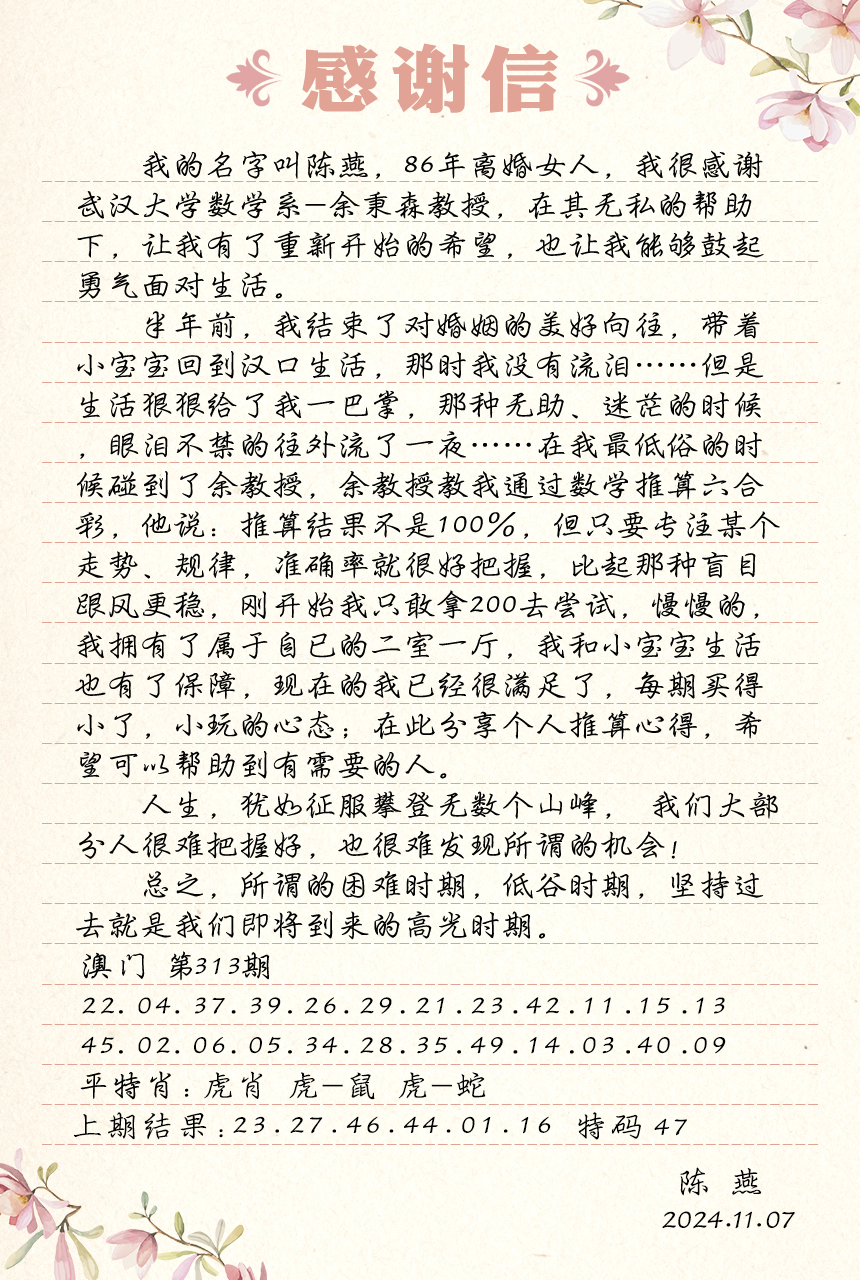 感谢信
我的名字叫陈燕，86年离婚女人，我很感谢
武汉大学数学系—余秉森教授，在其无私的帮助
下，让我有了重新开始的希望，也让我能够鼓起
勇气面对生活。
半年前，我结束了对婚姻的美好向往，带着
小宝宝回到汉口生活，那时我没有流泪……但是
生活狠狠给了我一巴掌，那种无助、迷茫的时候
，眼泪不禁的往外流了一夜……在我最低俗的时
候碰到了余教授，余教授教我通过数学推算六合
彩，他说：推算结果不是100%，但只要专注某个
走势、规律，准确率就很好把握，比起那种盲目
跟风更稳，刚开始我只敢拿200去尝试，慢慢的，
我拥有了属于自已的二室一厅，我和小宝宝生活
也有了保障，现在的我已经很满足了，每期买得
小了，小玩的心态；在此分享个人推算心得，希
望可以帮助到有需要的人。
人生，犹如征服攀登无数个山峰， 我们大部
分人很难把握好，也很难发现所谓的机会！
总之，所谓的困难时期，低谷时期，坚持过
去就是我们即将到来的高光时期。
澳门 第313期
22.04.37.39.26.29.21.23.42.11.15.13
45.02.06.05.34.28.35.49.14.03.40.09
平特肖：虎肖 虎—鼠 虎—蛇
上期结果：23.27.46.44.01.16 特码 47
陈 燕
2024.11.07